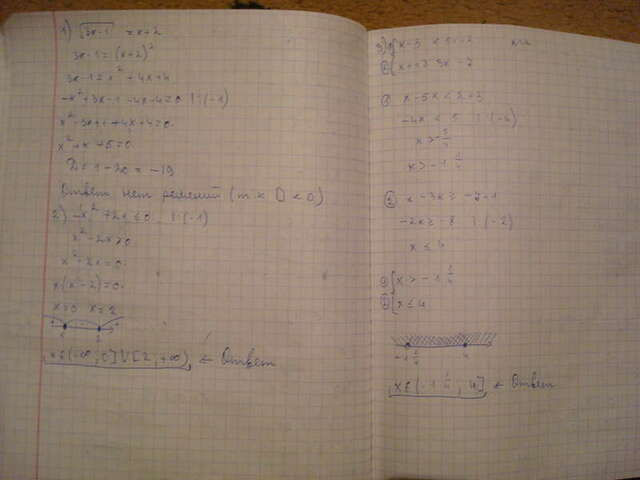 1) √3x-1 = x+2
3x-1=(x+2)²
3x-1=x²+4x+4
-x²+3x-1-4x-4=0 |:(-1)
x²-3x+1+4x+4=0
x²+x+5=0
D=1-20=-19
Ответ нет решений (т.к D<0)
2) -x²+2x≤0 |:(-1)
x²-2x≥0
x²-2x=0
x(x-2)=0
x=0 x=2
x∈(-∞;0]∪[2;+∞) ← Ответ
3) ① x-3 <
②
① x-5x<2+3
-4x < 5 |:(-4)
x>-5/4
x>-1 1/4
② x-3x≥-7-1
-2x≥-8 |:(-2)
x≤4
① x>-1 1/4
② x≤4
-1 1/4 4
x∈(-1 1/4; 4] ← Ответ